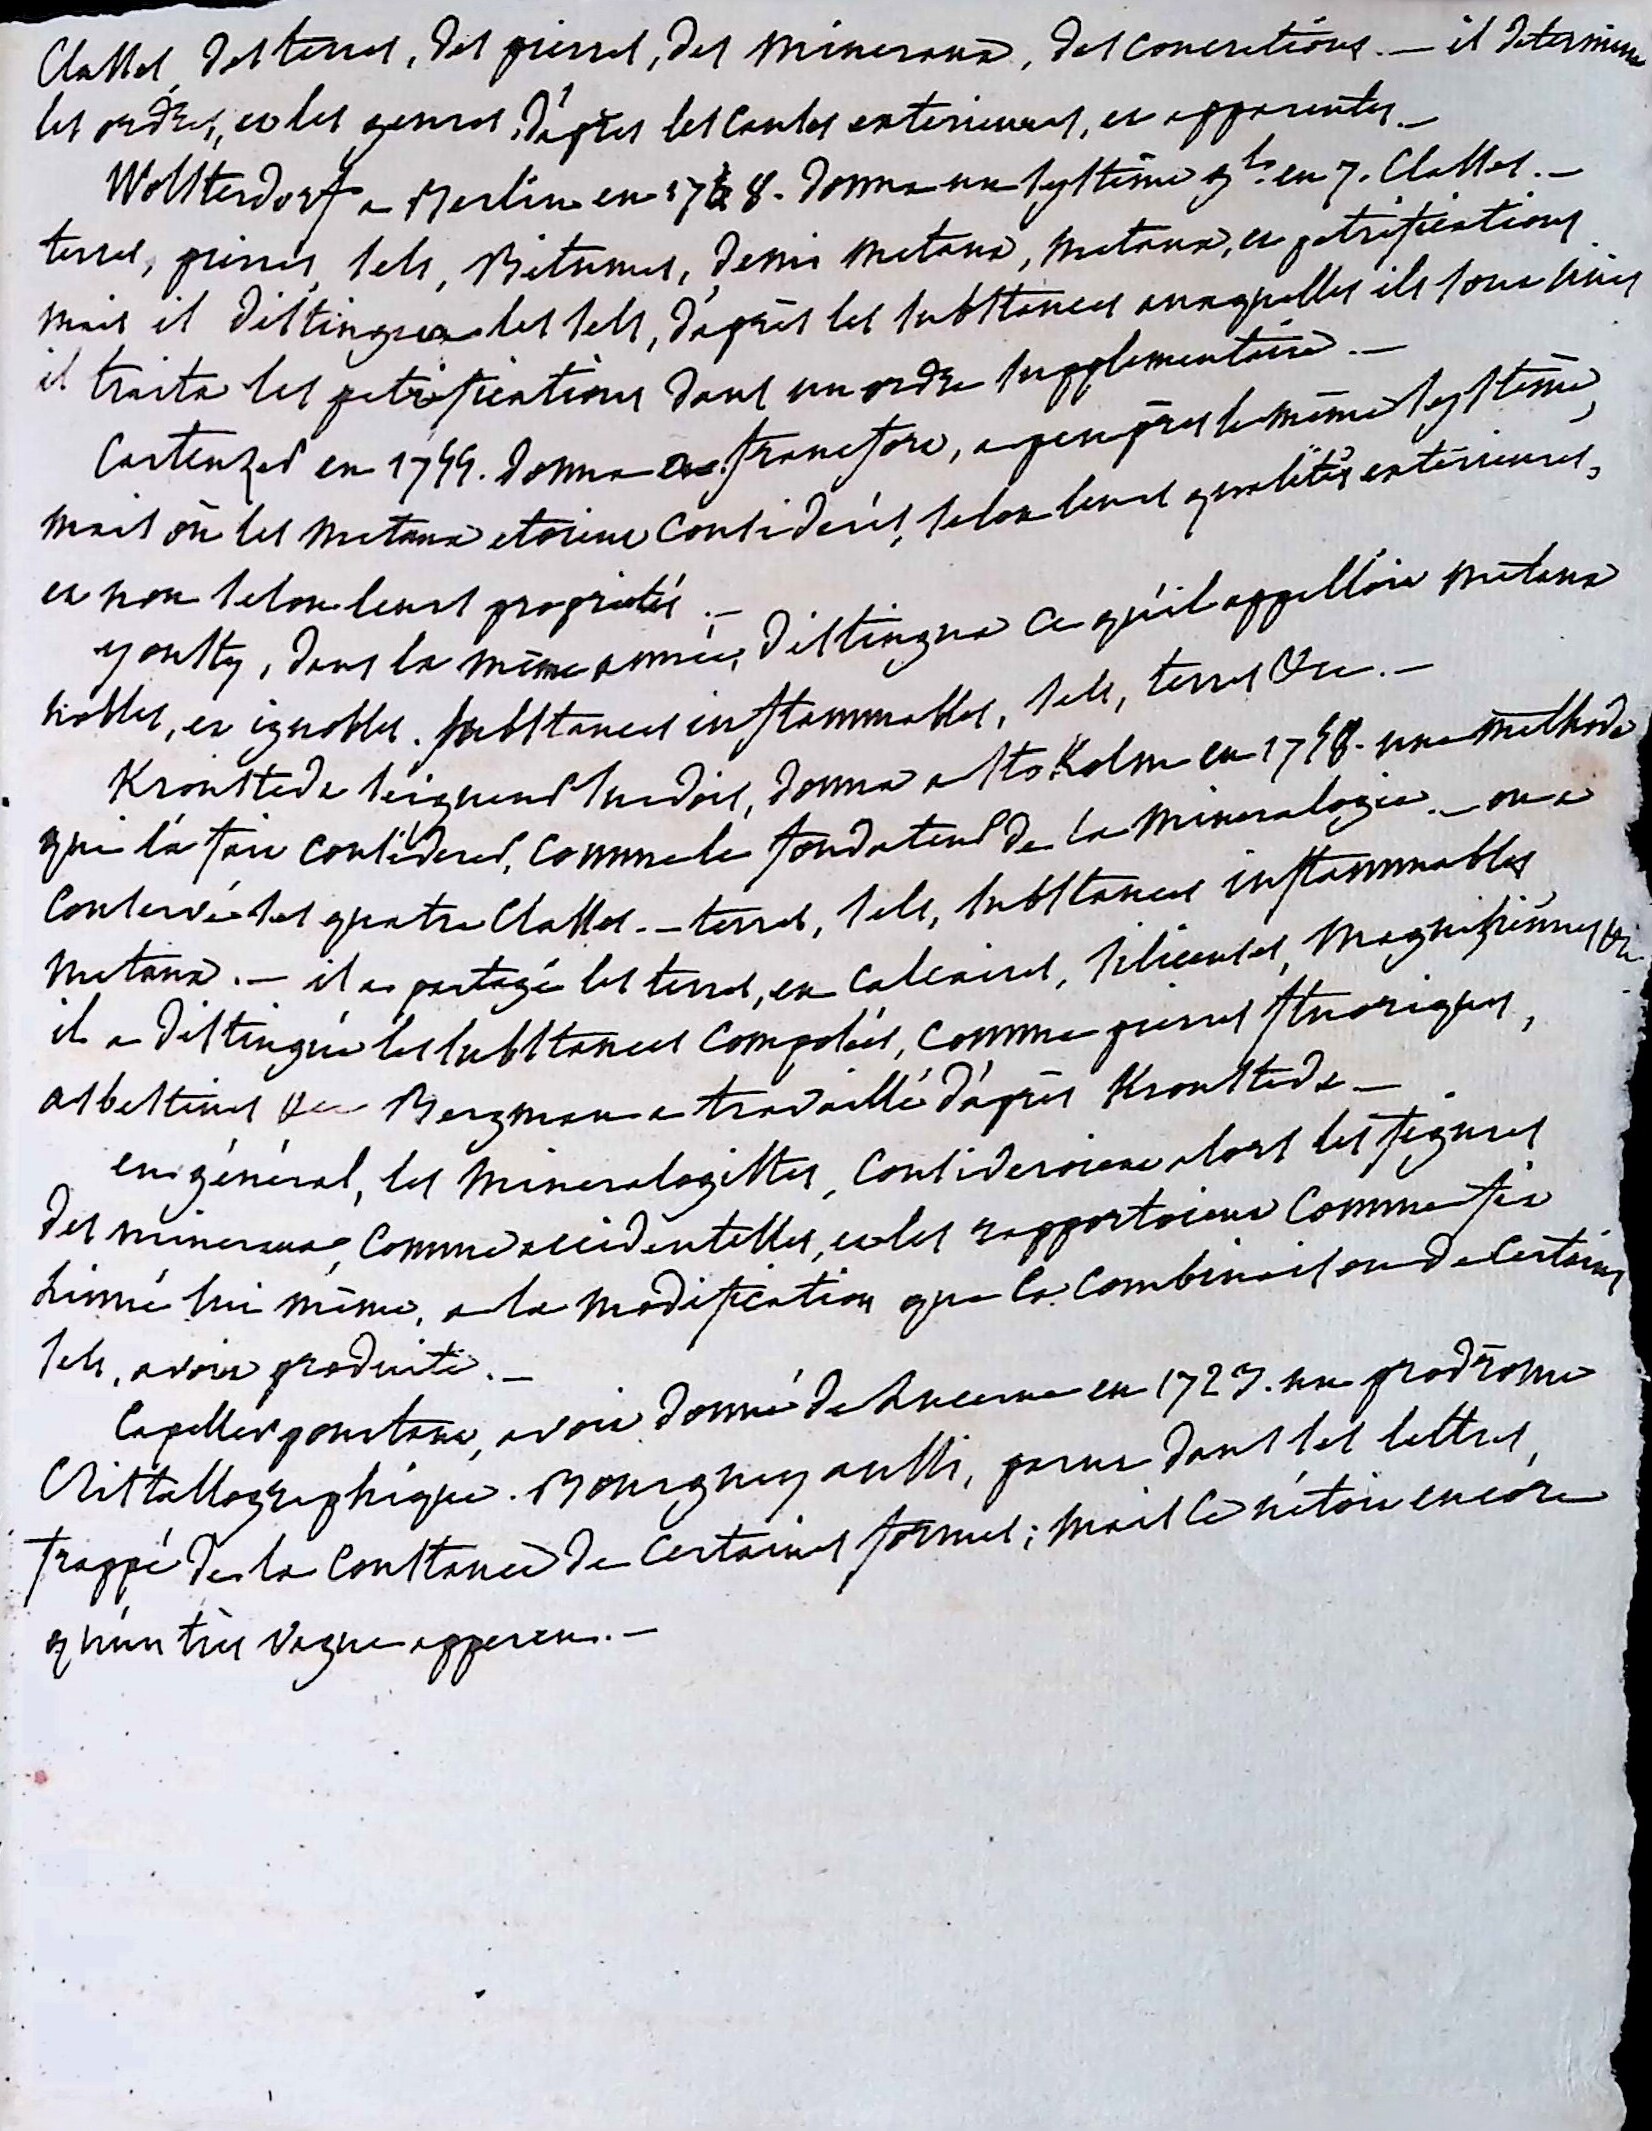 Classes, des terres, des pierres, des mineraux, des concretions. — il determina
les ordres, et les genres, d'après les causes exterieures, et apparentes. —
Wolsterdorf a Berlin en 1748. donna un systême gl. en 7. Classes. —
terres, pierres, sels, Bitumes, demi metaux, metaux, et petrifications
mais il distingua les sels, d'après les substances auxquelles ils sont unis
il traita les petrifications dans un ordre supplementaire. —
Cartenzer en 1755. donna a francfort, a peu près le même systême,
mais où les metaux etoient considerés, selon leurs qualités extérieures,
et non selon leurs proprietés. —
yousty, dans la même année, distingua ce qu'il appelloit metaux
nobles, et ignobles. substances inflammables, sels, terres &c. —
Kronstedt seigneur suedois, donna a Stokolm en 1758. une methode
qui l'a fait considerer, comme le fondateur de la mineralogie. — on a
conservé ses quatre Classes. — terres, sels, substances inflammables
metaux. — il a partagé les terres, en calcaires, siliceuses, magnésiennes &c
il a distingué les substances composées, comme pierres fluoriques,
asbestines &c Bergman a travaillé d'après Kronstedt —
en général, les mineralogistes, consideroient alors les figures
des mineraux, comme accidentelles, et les rapportoient comme fit
Linné lui même, a la modification que la combinaison de certains
sels, avoit produite. —
Capeller pourtant, avoit donné de Lucerne en 1723. un prodrome
Cristallographique. Bourguey aussi, parut dans ses lettres,
frappé de la constance de certaines formes; mais ce n'étoit encore
qu'un très vague apperçu. —